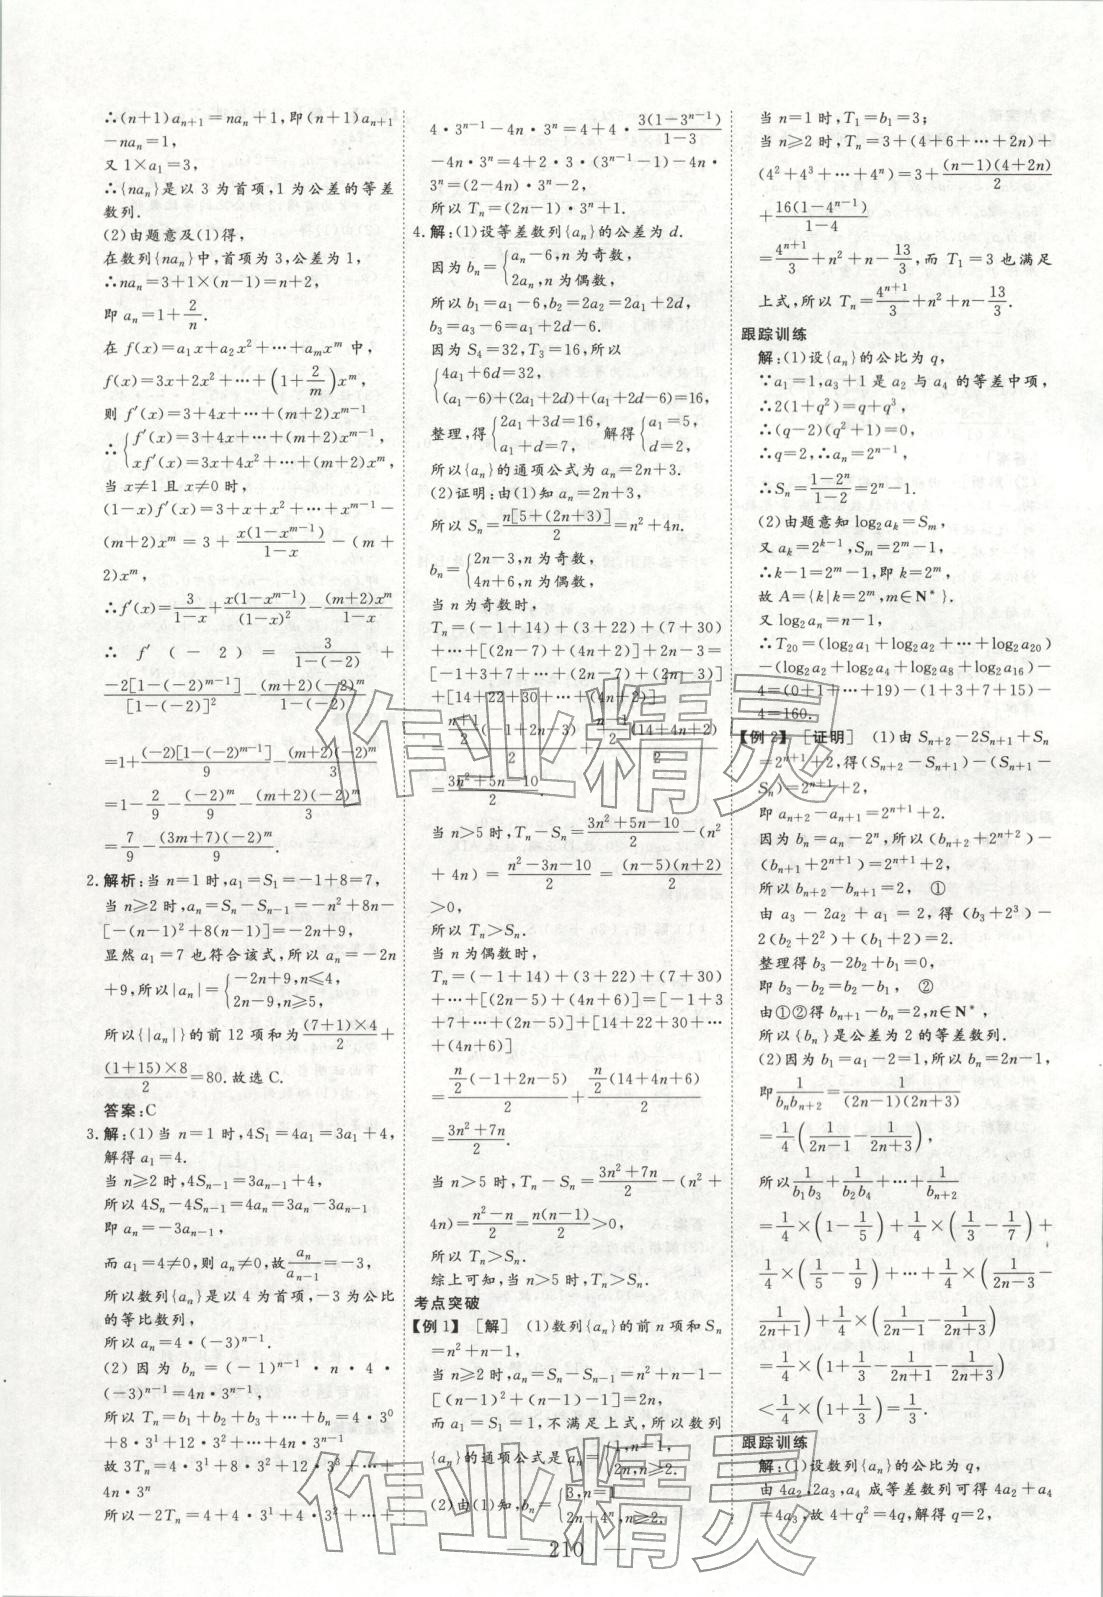 ∴(n+1)aₙ₊₁=naₙ+1,即(n+1)aₙ₊₁
-naₙ=1,
又1×a₁=3,
∴{naₙ}是以3为首项,1为公差的等差
数列.
(2)由题意及(1)得,
在数列{naₙ}中,首项为3,公差为1,
∴naₙ=3+1×(n-1)=n+2,
即 aₙ=1+2/n.
在 f(x)=a₁x+a₂x²+…+aₘxᵐ 中,
f(x)=3x+2x²+…+(1+2/m)xᵐ,
则 f′(x)=3+4x+…+(m+2)xᵐ⁻¹
∴{f′(x)=3+4x+…+(m+2)xᵐ⁻¹,
xf′(x)=3x+4x²+…+(m+2)xᵐ,
当 x≠1 且 x≠0 时,
(1-x)f′(x)=3+x+x²+…+xᵐ⁻¹-
(m+2)xᵐ=3+x(1-xᵐ⁻¹)/(1-x)-(m+
2)xᵐ,
∴f′(x)=3/(1-x)+x(1-xᵐ⁻¹)/(1-x)²-(m+2)xᵐ/(1-x)
∴ f′(-2)=3/(1-(-2))+
-2[1-(-2)ᵐ⁻¹]/[1-(-2)]²-(m+2)(-2)ᵐ/(1-(-2))
=1+(-2)[1-(-2)ᵐ⁻¹]/9-(m+2)(-2)ᵐ/3
=1-2/9-(-2)ᵐ/9-(m+2)(-2)ᵐ/3
=7/9-(3m+7)(-2)ᵐ/9.
2.解析:当 n=1 时,a₁=S₁=-1+8=7,
当 n≥2 时,aₙ=Sₙ-Sₙ₋₁=-n²+8n-
[-(n-1)²+8(n-1)]=-2n+9,
显然 a₁=7 也符合该式,所以 aₙ=-2n
+9,所以|aₙ|={-2n+9,n≤4,
2n-9,n≥5,
所以{|aₙ|}的前 12 项和为(7+1)×4/2+
(1+15)×8/2=80.故选 C.
答案:C
3.解:(1)当 n=1 时,4S₁=4a₁=3a₁+4,
解得 a₁=4.
当 n≥2 时,4Sₙ₋₁=3aₙ₋₁+4,
所以 4Sₙ-4Sₙ₋₁=4aₙ=3aₙ-3aₙ₋₁
即 aₙ=-3aₙ₋₁,
而 a₁=4≠0,则 aₙ≠0,故aₙ/aₙ₋₁=-3,
所以数列{aₙ}是以 4 为首项,-3 为公比
的等比数列,
所以 aₙ=4·(-3)ⁿ⁻¹.
(2)因为 bₙ=(-1)ⁿ⁻¹·n·4·
(-3)ⁿ⁻¹=4n·3ⁿ⁻¹,
所以 Tₙ=b₁+b₂+b₃+…+bₙ=4·3⁰
+8·3¹+12·3²+…+4n·3ⁿ⁻¹
故 3Tₙ=4·3¹+8·3²+12·3³+…+
4n·3ⁿ
所以-2Tₙ=4+4·3¹+4·3²+…+
4·3ⁿ⁻¹-4n·3ⁿ=4+4·3(1-3ⁿ⁻¹)/(1-3)
-4n·3ⁿ=4+2·3·(3ⁿ⁻¹-1)-4n·
3ⁿ=(2-4n)·3ⁿ-2,
所以 Tₙ=(2n-1)·3ⁿ+1.
4.解:(1)设等差数列{aₙ}的公差为 d.
因为 bₙ={aₙ-6,n为奇数,
2aₙ,n为偶数,
所以 b₁=a₁-6,b₂=2a₂=2a₁+2d,
b₃=a₃-6=a₁+2d-6.
因为 S₄=32,T₃=16,所以
{4a₁+6d=32,
(a₁-6)+(2a₁+2d)+(a₁+2d-6)=16,
整理,得{2a₁+3d=16, 解得{a₁=5,
a₁+d=7, d=2,
所以{aₙ}的通项公式为 aₙ=2n+3.
(2)证明:由(1)知 aₙ=2n+3,
所以 Sₙ=n[5+(2n+3)]/2=n²+4n.
bₙ={2n-3,n为奇数,
4n+6,n为偶数,
当 n 为奇数时,
Tₙ=(-1+14)+(3+22)+(7+30)
+…+[(2n-7)+(4n+2)]+2n-3=
[-1+3+7+…+(2n-7)+(2n-3)]
+[14+22+30+…+(4n+2)]
=(n+1)/2(-1+2n-3)/2+(n-1)/2(14+4n+2)/2
=(3n²+5n-10)/2.
当 n>5 时,Tₙ-Sₙ=(3n²+5n-10)/2-(n²
+4n)=(n²-3n-10)/2=(n-5)(n+2)/2
>0,
所以 Tₙ>Sₙ.
当 n 为偶数时,
Tₙ=(-1+14)+(3+22)+(7+30)
+…+[(2n-5)+(4n+6)]=[-1+3
+7+…+(2n-5)]+[14+22+30+…
+(4n+6)]
=n/2(-1+2n-5)/2+n/2(14+4n+6)/2
=(3n²+7n)/2.
当 n>5 时,Tₙ-Sₙ=(3n²+7n)/2-(n²+
4n)=(n²-n)/2=n(n-1)/2>0,
所以 Tₙ>Sₙ.
综上可知,当 n>5 时,Tₙ>Sₙ.
考点突破
【例1】 [解] (1)数列{aₙ}的前 n 项和 Sₙ
=n²+n-1,
当 n≥2 时,aₙ=Sₙ-Sₙ₋₁=n²+n-1-
[(n-1)²+(n-1)-1]=2n,
而 a₁=S₁=1,不满足上式,所以数列
{aₙ}的通项公式是 aₙ={1,n=1,
2n,n≥2.
(2)由(1)知,bₙ={3,n=1,
2n+4ⁿ,n≥2.
当 n=1 时,T₁=b₁=3;
当 n≥2 时,Tₙ=3+(4+6+…+2n)+
(4²+4³+…+4ⁿ)=3+(n-1)(4+2n)/2
+16(1-4ⁿ⁻¹)/(1-4)
=4ⁿ⁺¹/3+n²+n-13/3,而 T₁=3 也满足
上式,所以 Tₙ=4ⁿ⁺¹/3+n²+n-13/3.
跟踪训练
解:(1)设{aₙ}的公比为 q,
∵a₁=1,a₃+1 是 a₂ 与 a₄ 的等差中项,
∴2(1+q²)=q+q³,
∴(q-2)(q²+1)=0,
∴q=2,∴aₙ=2ⁿ⁻¹,
∴Sₙ=(1-2ⁿ)/(1-2)=2ⁿ-1.
(2)由题意知 log₂aₖ=Sₘ,
又 aₖ=2ᵏ⁻¹,Sₘ=2ᵐ-1,
∴k-1=2ᵐ-1,即 k=2ᵐ,
故 A={k|k=2ᵐ,m∈N*}.
又 log₂aₙ=n-1,
∴T₂₀=(log₂a₁+log₂a₂+…+log₂a₂₀)
-(log₂a₂+log₂a₄+log₂a₈+log₂a₁₆)-
4=(0+1+…+19)-(1+3+7+15)-
4=160.
【例2】 [证明] (1)由 Sₙ₊₂-2Sₙ₊₁+Sₙ
=2ⁿ⁺¹+2,得(Sₙ₊₂-Sₙ₊₁)-(Sₙ₊₁-
Sₙ)=2ⁿ⁺¹+2,
即 aₙ₊₂-aₙ₊₁=2ⁿ⁺¹+2.
因为 bₙ=aₙ-2ⁿ,所以(bₙ₊₂+2ⁿ⁺²)-
(bₙ₊₁+2ⁿ⁺¹)=2ⁿ⁺¹+2,
所以 bₙ₊₂-bₙ₊₁=2, ①
由 a₃-2a₂+a₁=2,得(b₃+2³)-
2(b₂+2²)+(b₁+2)=2.
整理得 b₃-2b₂+b₁=0,
即 b₃-b₂=b₂-b₁, ②
由①②得 bₙ₊₁-bₙ=2,n∈N*,
所以{bₙ}是公差为 2 的等差数列.
(2)因为 b₁=a₁-2=1,所以 bₙ=2n-1,
即1/(bₙbₙ₊₂)=1/((2n-1)(2n+3))
=1/4(1/(2n-1)-1/(2n+3)),
所以1/(b₁b₃)+1/(b₂b₄)+…+1/bₙ₊₂
=1/4×(1-1/5)+1/4×(1/3-1/7)+
1/4×(1/5-1/9)+…+1/4×(1/(2n-3)-
1/(2n+1))+1/4×(1/(2n-1)-1/(2n+3))
=1/4×(1+1/3-1/(2n+1)-1/(2n+3))
<1/4×(1+1/3)=1/3.
跟踪训练
解:(1)设数列{aₙ}的公比为 q,
由 4a₂,2a₃,a₄ 成等差数列可得 4a₂+a₄
=4a₃,故 4+q²=4q,解得 q=2,
210
作业精灵
作业精灵